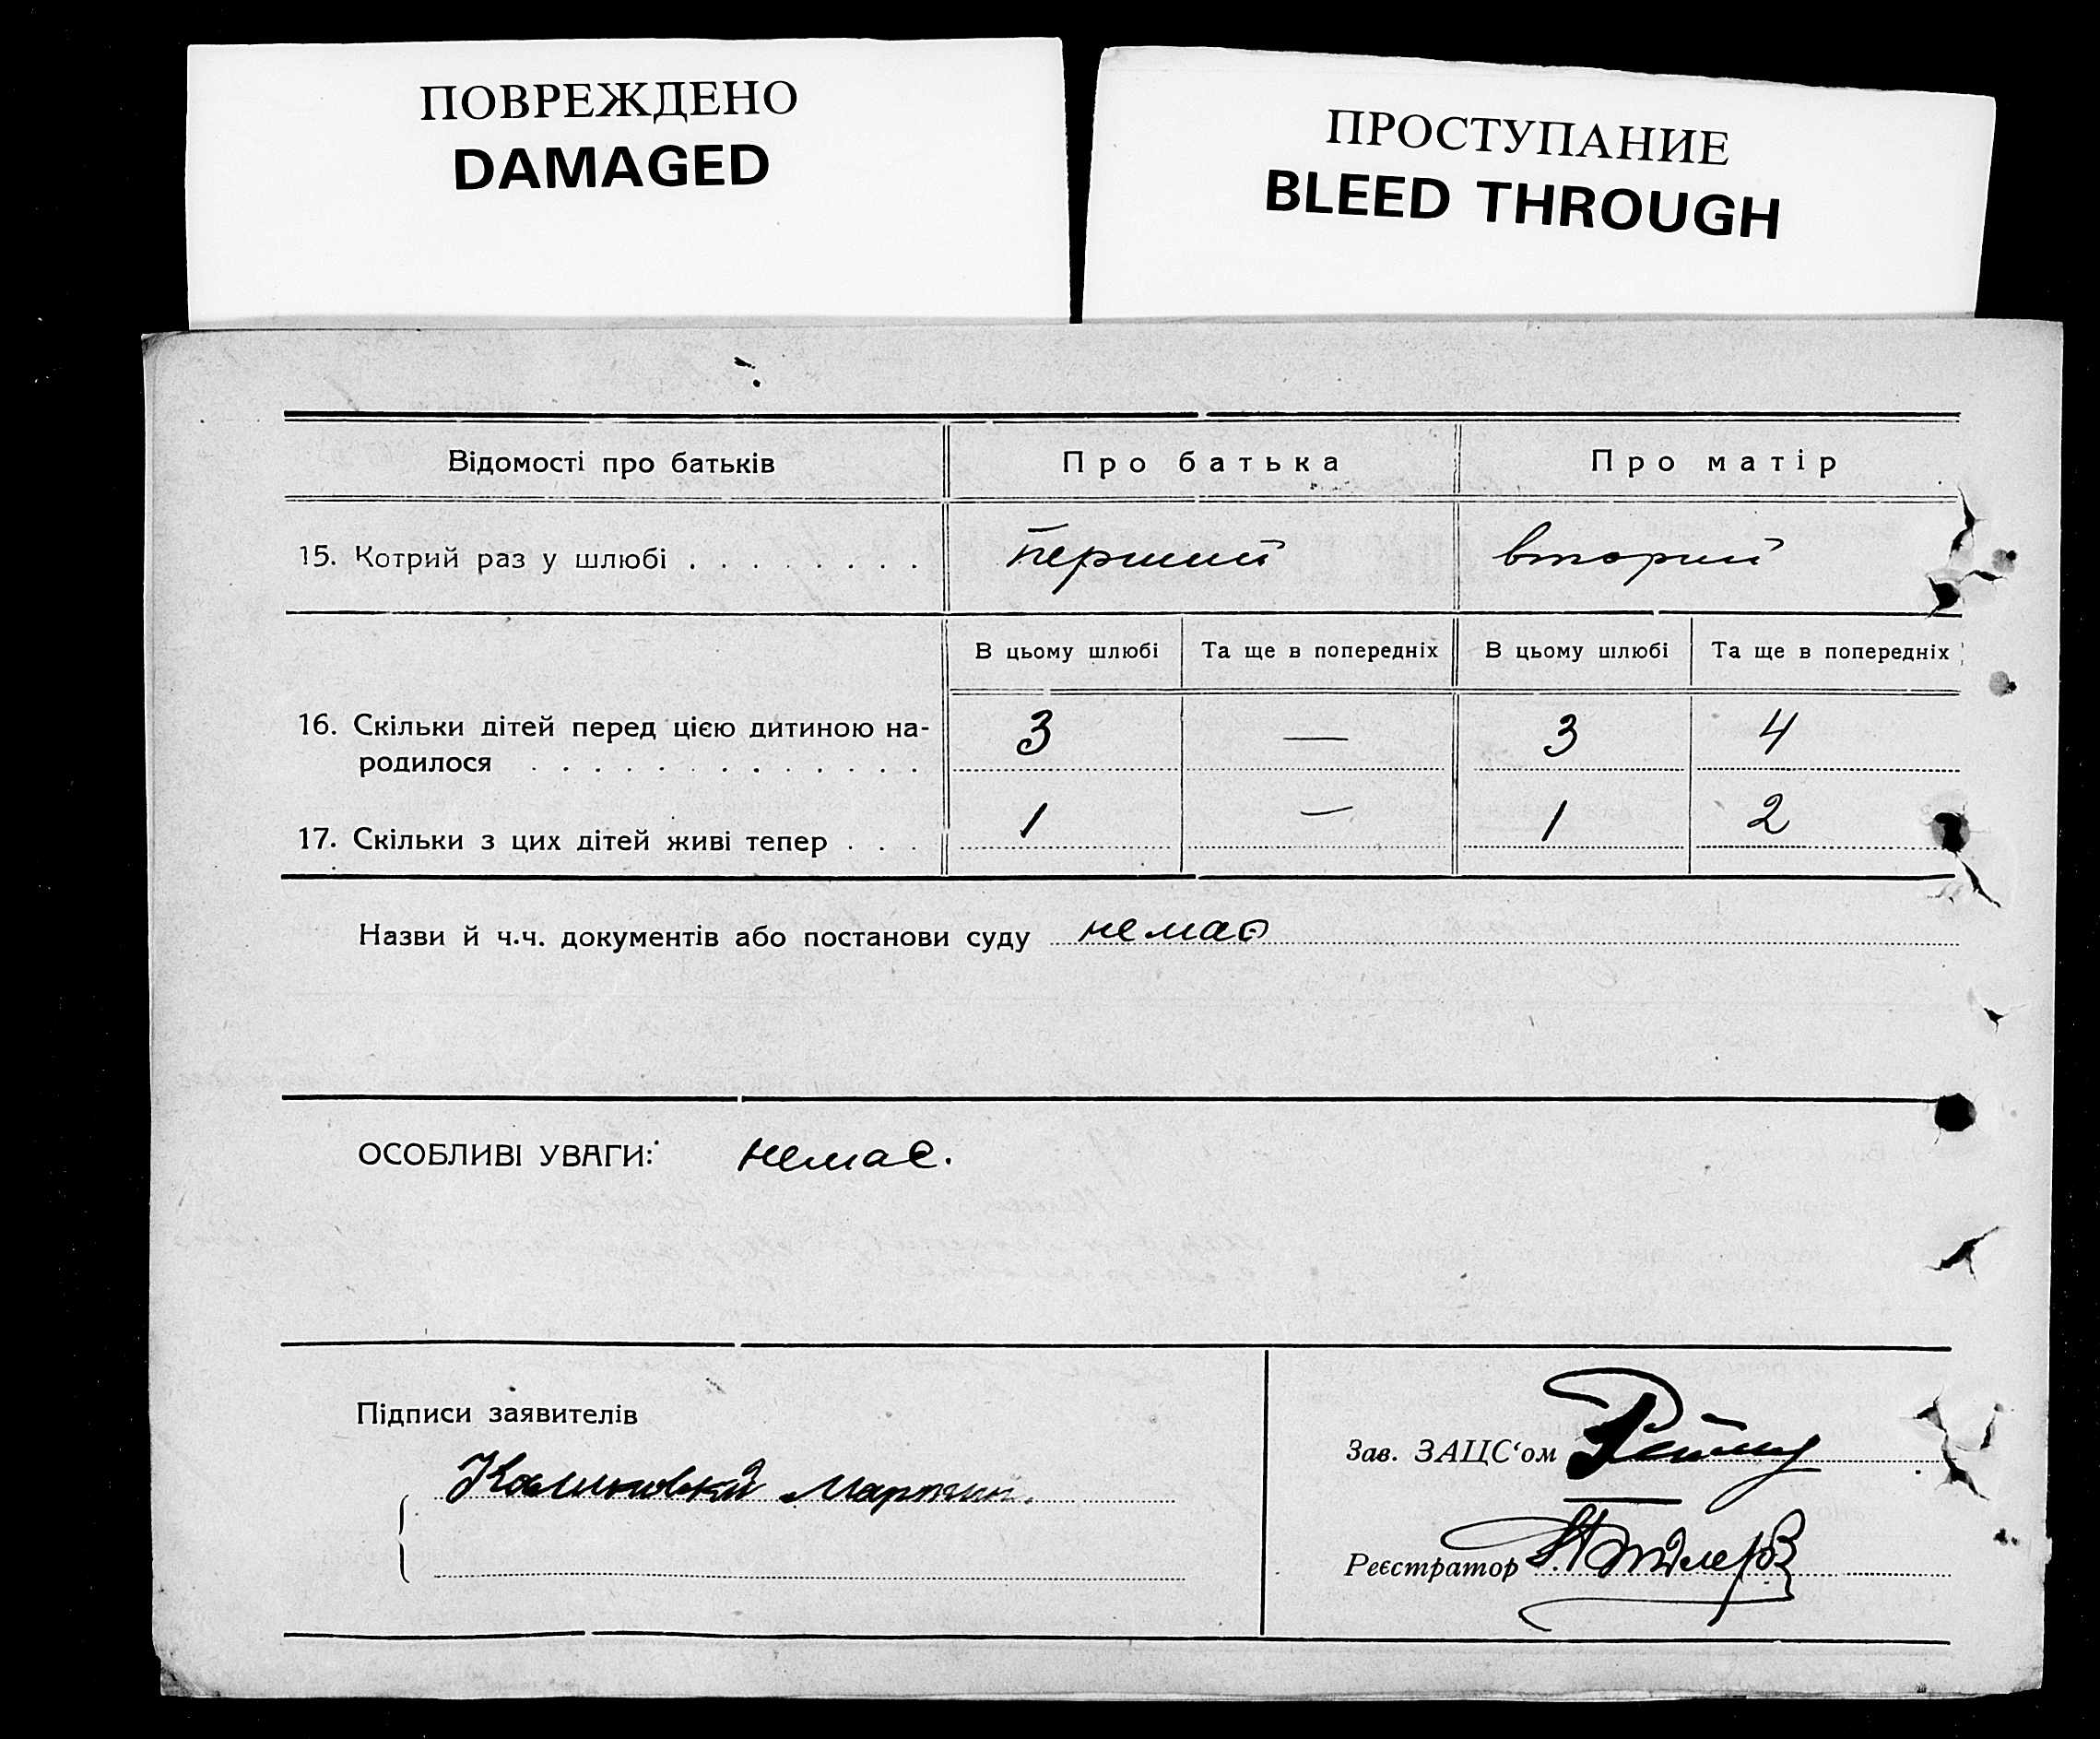 ПОВРЕЖДЕНО
DAMAGED
ПРОСТУПАНИЕ
BLEED THROUGH
Відомості про батьків Про батька Про матір
15. Котрий раз у шлюбі . . . . . . . . перший вторий
В цьому шлюбі Та ще в попередніх В цьому шлюбі Та ще в попередніх
16. Скільки дітей перед цією дитиною на-
родилося . . . . . . . . . . . . . 3 — 3 4
17. Скільки з цих дітей живі тепер . . . 1 — 1 2
Назви й ч.ч. документів або постанови суду немає
ОСОБЛИВІ УВАГИ: немає.
Підписи заявителів
Калиновскій Мартин.
Зав. ЗАЦС‘ом
Реєстратор